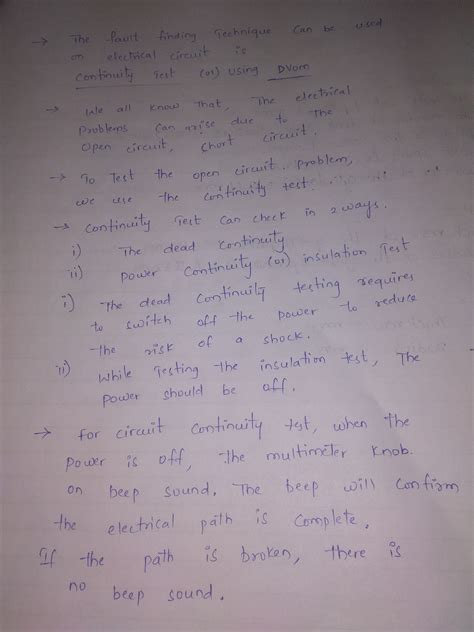 → The fault finding Technique can be used
on electrical circuit is
Continuity Test (or) using DVOM
→ We all know That, The electrical
problems can arise due to The
open circuit, short circuit.
→ To Test the open circuit problem,
we use the continuity test.
→ Continuity Test can check in 2 ways.
i) The dead continuity
ii) power continuity (or) insulation Test
i) The dead continuity testing requires
to switch off the power to reduce
the risk of a shock.
ii) While Testing the insulation test, The
power should be off.
→ for circuit continuity test, when the
power is off, the multimeter knob.
on beep sound. The beep will confirm
the electrical path is complete.
If the path is broken, there is
no beep sound.